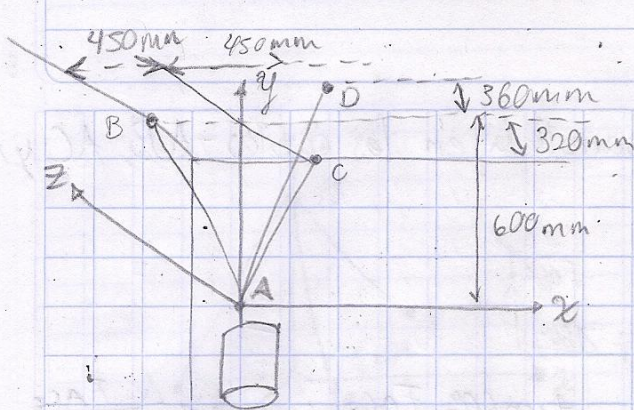 450mm 450mm
y
D
360mm
B
320mm
Z
C
600mm
A
x